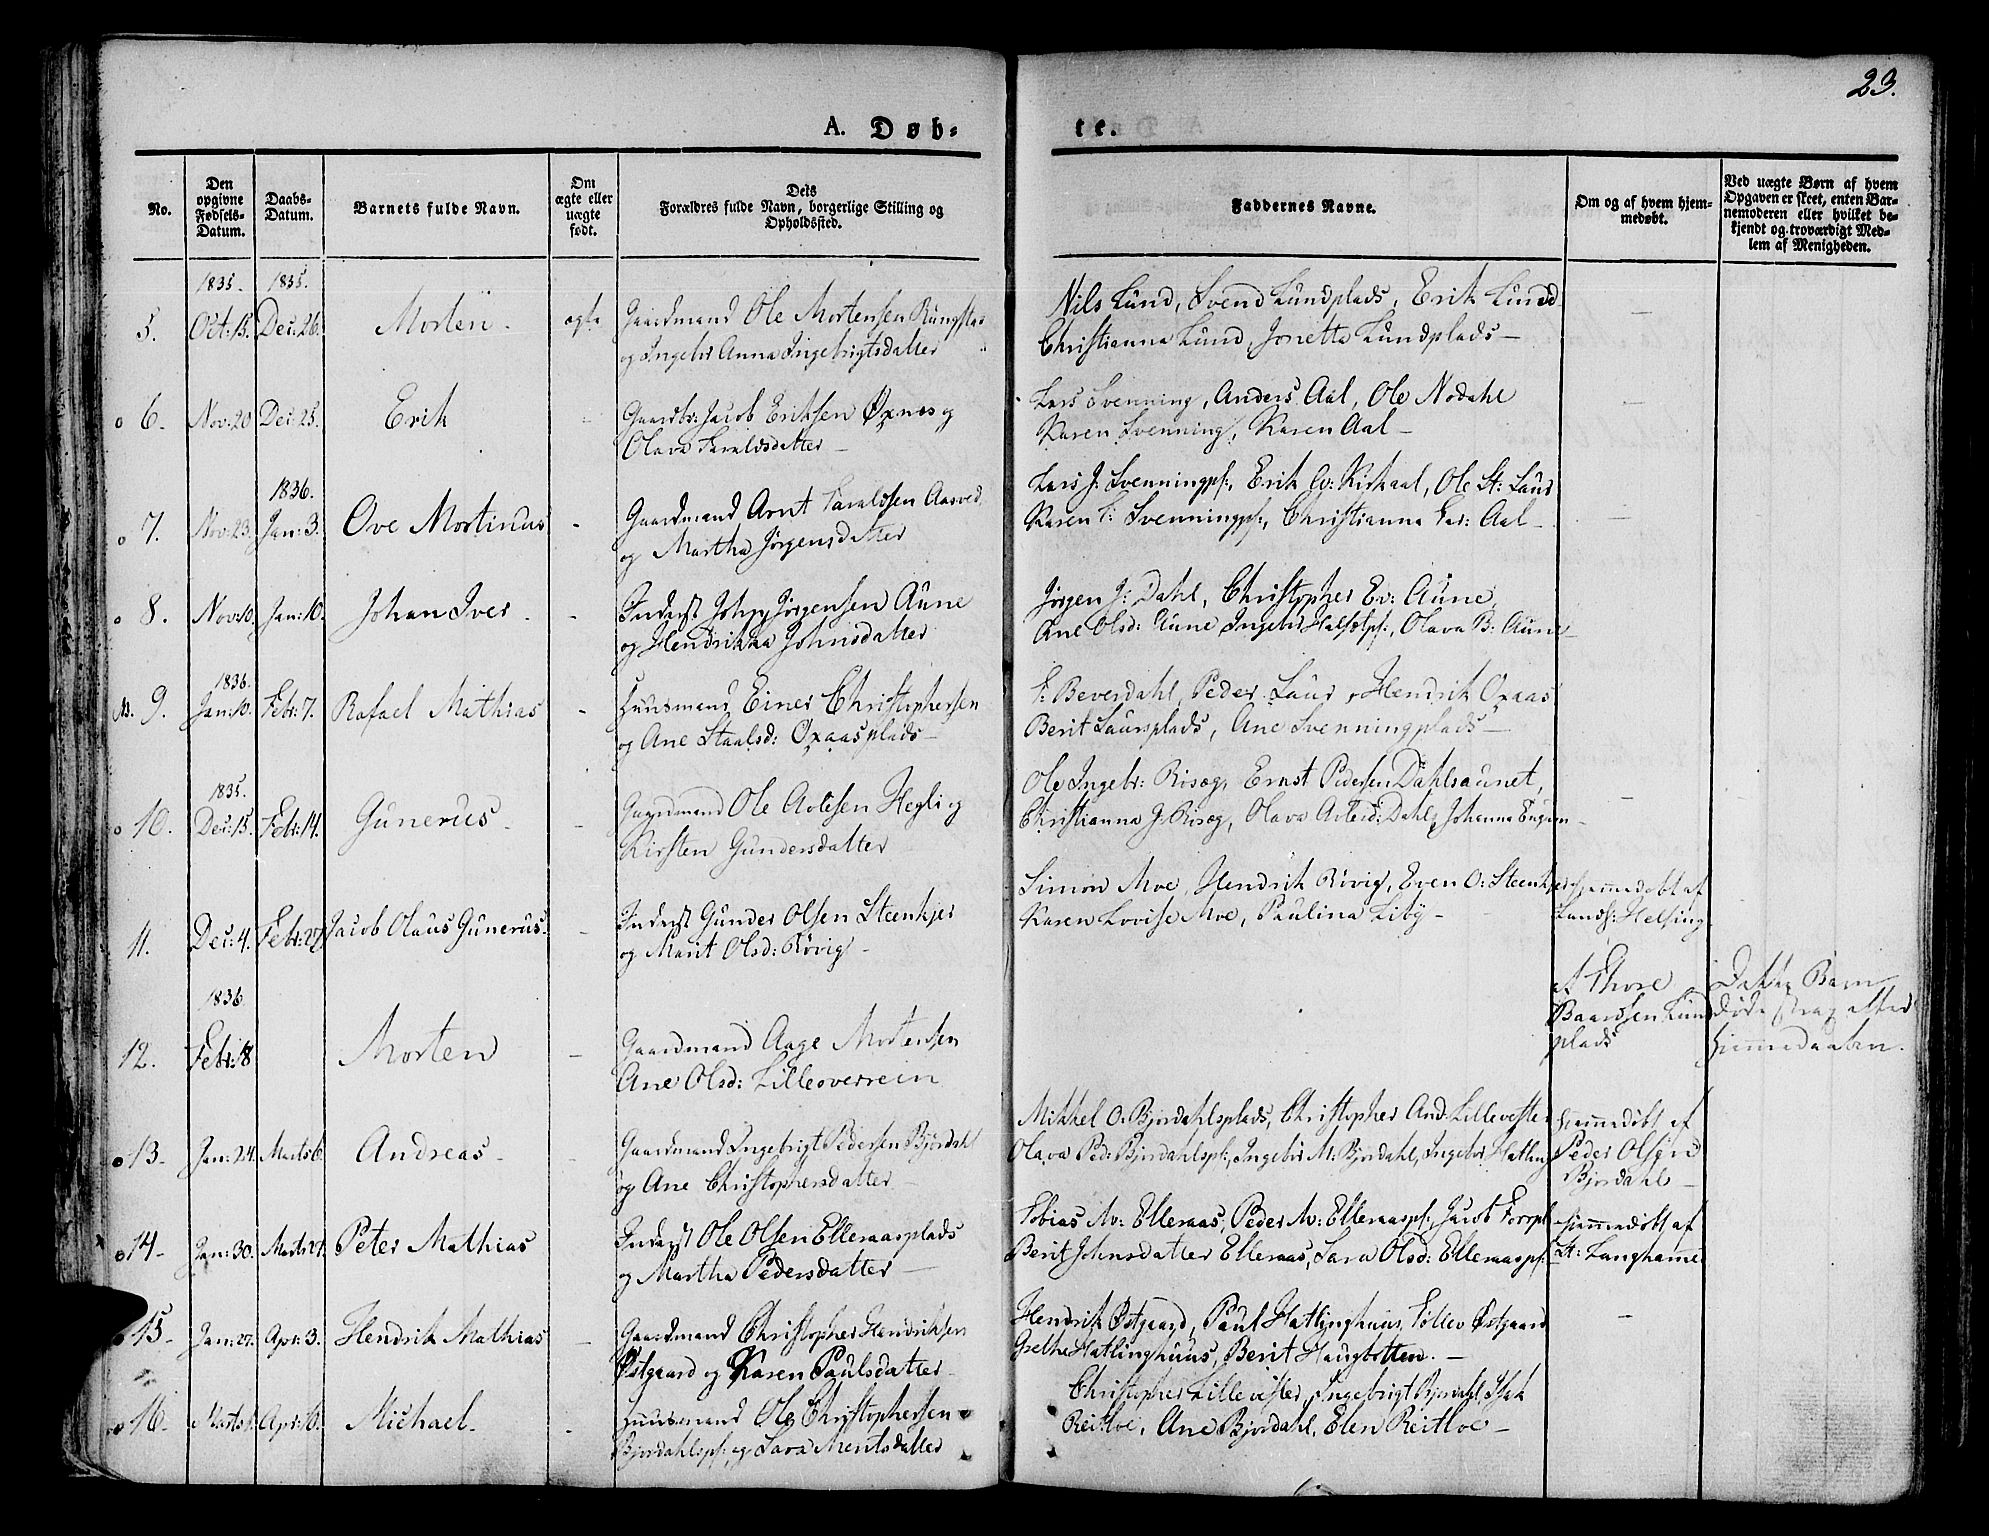 23.
A. Døb-
te.
No.
Den opgivne Fødsels-Datum.
Daabs-Datum.
Barnets fulde Navn.
Om ægte eller uægte født.
Dets Forældres fulde Navn, borgerlige Stilling og Opholdssted.
Faddernes Navne.
Om og af hvem hjemmedøbt.
Ved uægte Børn af hvem Opgaven er skeet, enten Barnemoderen eller hvilket bekjendt og troværdigt Medlem af Menigheden.
1835. 1835.
5. Oct: 13. Dec: 26. Morten. ægte Gaardmand Ole Mortensen
og Ingebr Anna Ingebrigtsdatter
Nils Lund, Svend Lundplads, Erik Lund
Christianna Lund, Jonetta Lundplads —
6. Nov: 20 Dec: 25. Erik Gaardbr: Jacob Eriksen Øxnes og
Olava Haraldsdatter —
Lars Svenning, Anders Aal, Ole Nodahl
Karen Svenning, Karen Aal —
1836.
7. Nov: 23. Jan: 3. Ove Martinus - Gaardmand Arnt Haraldsen Aasved
og Martha Jørgensdatter
Lars J: Svenningpl:, Erik Kirkaal, Ole St: Laur
Karen Svenningpl:, Christianna Aal —
8. Nov: 10. Jan: 10. Johan Iver - Inderst John Jørgensen Aune
og Hendrikka Johnsdatter
Jørgen J: Dahl, Christopher Ev: Aune,
Ane Olsd: Aune Ingebr , Olava B: Aune —
1836.
9. Jan: 10. Febr: 7. Rafael Mathias - Huusmand Einer Christophersen
og Ane Staalsd: Oxaasplads —
Beverdahl, Peder Laur, Hendrik Oxaas
Berit Laursplads, Ane Svenningplads —
1835.
10. Dec: 15. Febr: 14. Gunerus - Gaardmand Ole Hegli og
Kirsten Gundersdatter
Ole Ingebr: Risæg, Ernst Pedersen Dahlsaunet,
Christianna J: Risæg, Olava Dahl, Johanna
11. Dec: 4. Febr: 27 Jacob Olaus Gunerus. - Inderst Gunder Olsen Steenkjer
og Marit Olsd: Røvig —
Simon Moe, Hendrik Røvig, Even O: Steenkjer
Karen Lovise Moe, Paulina Liby —
Hjemmedøbt af
1836
12. Febr: 18 Morten — Gaardmand Aage Mortensen
Ane Olsd: Lilleoverrein
af Thore
Baardsen Lund
plads
Dette Barn
døde strax efter
Hjemmedaaben.
13. Jan: 24. Marts 6. Andreas. Gaardmand Ingebrigt Pedersen Bjordahl
og Ane Christophersdatter —
Mikkel O: Bjordahlsplads, Christopher And: Lillevester
Olava Ped: Bjordahlspl:, Ingebr M: Bjordahl, Ingebr Hatling
Hjemmedøbt af
Peder Olsen
Bjordahl —
14. Jan: 30. Marts 27. Peter Mathias Inderst Ole Olsen Elleraasplads
og Martha Pedersdatter —
Tobias M: Elleraas, Peder M: Elleraaspl:, Jacob
Berit Johnsdatter Elleraas, Sara Olsd: Elleraaspl:
Hjemmedøbt af
St: Langhamme
15. Jan: 27. Apr: 3. Hendrik Mathias — Gaardmand Christopher Hendriksen
Østgaard og Karen Paulsdatter —
Hendrik Østgaard, Paul Hatlinghuus, Tollev Østgaard
Grethe Hatlinghuus, Berit Haugbotten. —
16. Marts Apr: Michael. - Huusmand Ole Christophersen
Bjordahlspl: og Sara Mentsdatter
Christopher Lillevester, Ingebrigt Bjordahl, Isak
Reitloe, Ane Bjordahl, Elen Reitloe —